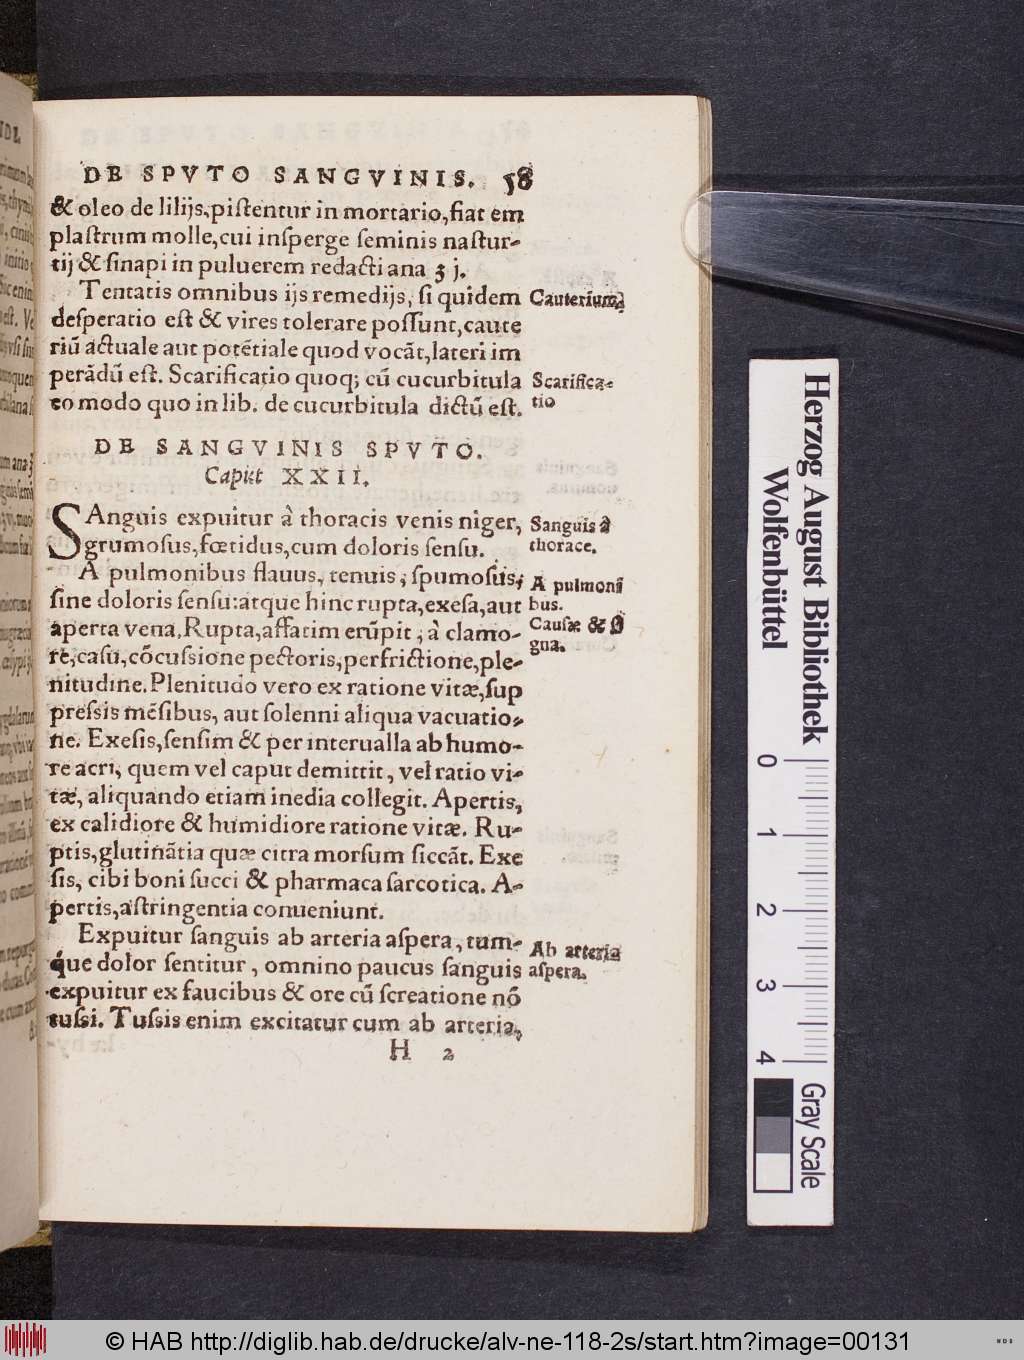 DE SPVTO SANGVINIS. 58
& oleo de lilijs, pistentur in mortario, fiat em
plastrum molle, cui insperge seminis nastur-
tij & sinapi in puluerem redacti ana ʒ j.
Tentatis omnibus ijs remedijs, si quidem
desperatio est & vires tolerare possunt, caute
riū actuale aut potētiale quod vocāt, lateri im
perādū est. Scarificatio quoq; cū cucurbitula
eo modo quo in lib. de cucurbitula dictū est.
Cauterium
Scarifica-
tio
DE SANGVINIS SPVTO.
Caput XXII.
SAnguis expuitur à thoracis venis niger,
grumosus, fœtidus, cum doloris sensu.
A pulmonibus flauus, tenuis, spumosus,
sine doloris sensu: atque hinc rupta, exesa, aut
aperta vena. Rupta, affatim erūpit, à clamo-
re, casu, cōcussione pectoris, perfrictione, ple-
nitudine. Plenitudo vero ex ratione vitæ, sup
pressis mēsibus, aut solenni aliqua vacuatio-
ne. Exesis, sensim & per interualla ab humo-
re acri, quem vel caput demittit, vel ratio vi-
tæ, aliquando etiam inedia collegit. Apertis,
ex calidiore & humidiore ratione vitæ. Ru-
ptis, glutinātia quæ citra morsum siccāt. Exe
sis, cibi boni succi & pharmaca sarcotica. A-
pertis, astringentia conueniunt.
Expuitur sanguis ab arteria aspera, tum-
que dolor sentitur, omnino paucus sanguis
expuitur ex faucibus & ore cū screatione nō
tussi. Tussis enim excitatur cum ab arteria,
Sanguis à
thorace.
A pulmoni
bus.
Causæ & si
gna.
Ab arteria
aspera.
H 2
Herzog August Bibliothek
Wolfenbüttel
0 1 2 3 4
Gray Scale
© HAB http://diglib.hab.de/drucke/alv-ne-118-2s/start.htm?image=00131